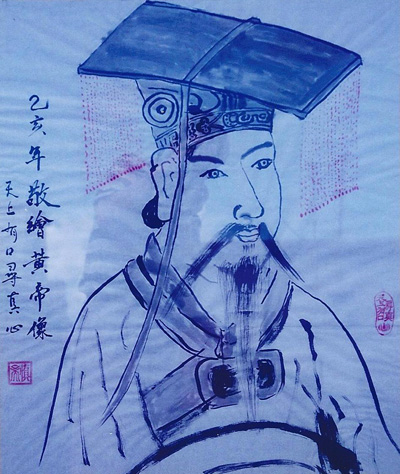 乙亥年敬繪黄帝像
天上有口尋真心